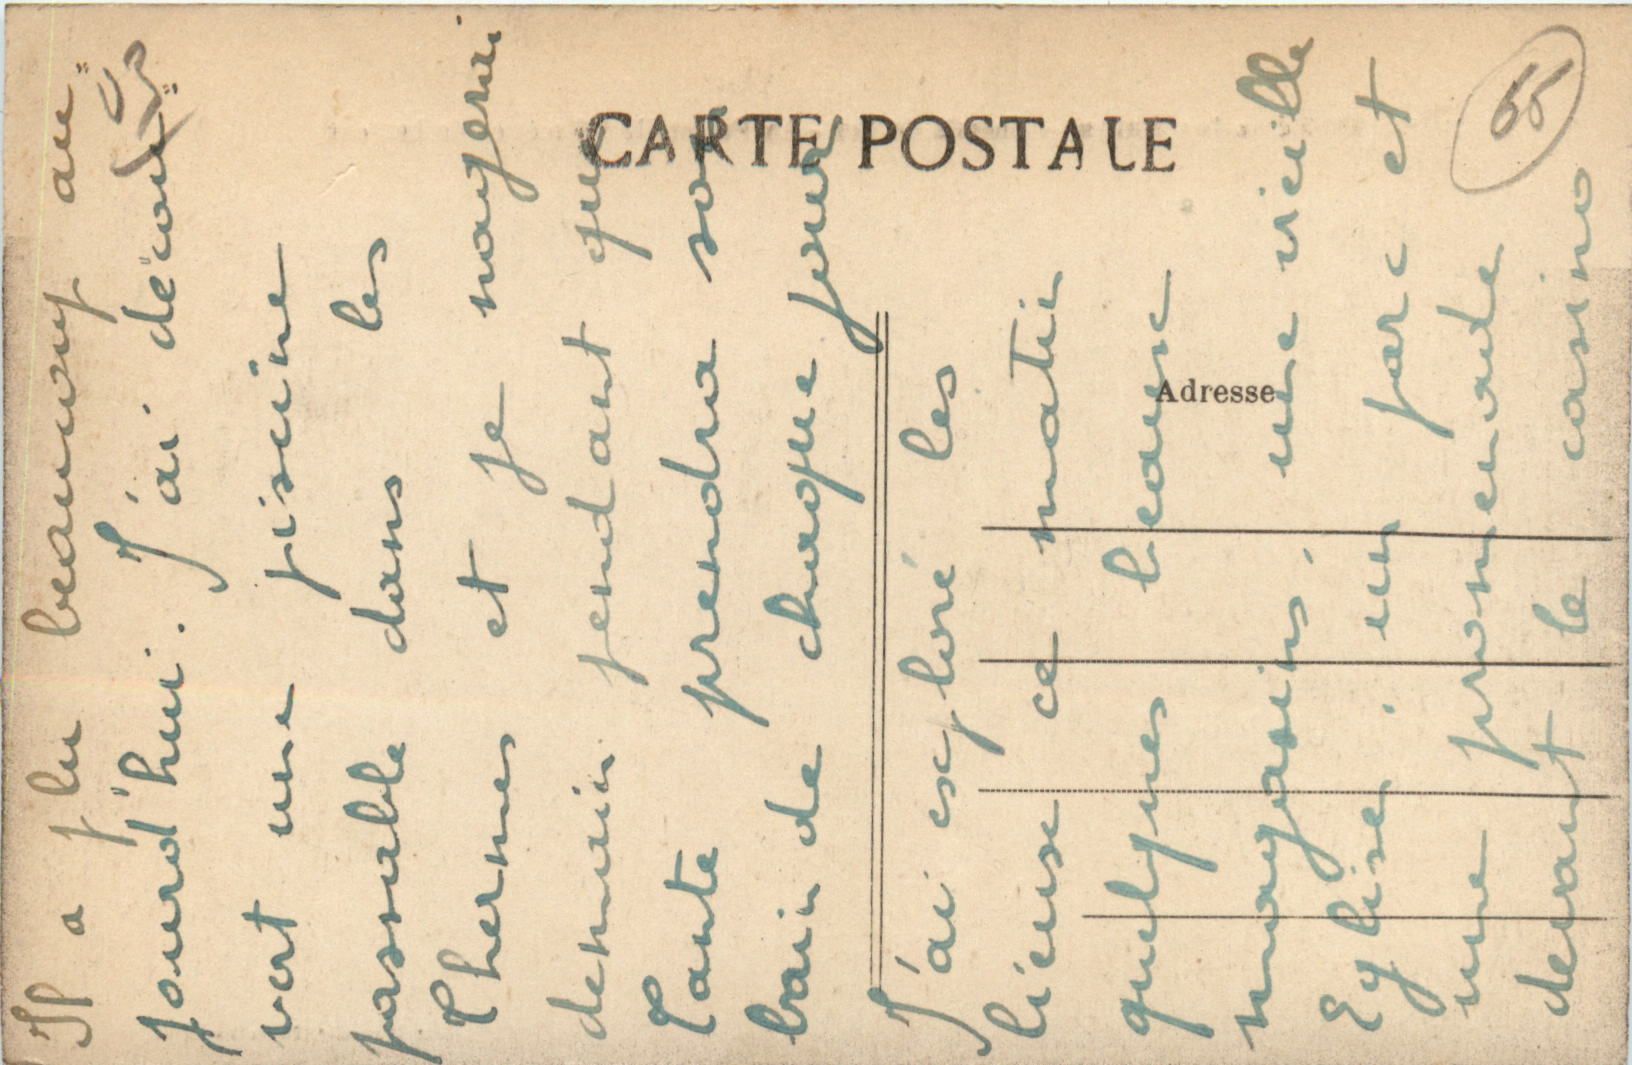 CARTE POSTALE
Adresse
55
Il a plu beaucoup au"
jourd"hui. J'ai décou"
vert une piscine
passable dans les
Thermes et je nagerai
demain pendant que
Tante prendra son
bain de chaque jour
J'ai exploré les
lieux ce matin
quelques beaux
magasins, une vieille
Eglise, un parc et
une promenade
devant le casino